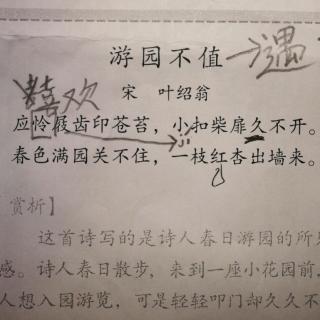 游园不值 遇
宋 叶绍翁
喜欢
应怜屐齿印苍苔，小扣柴扉久不开。
春色满园关不住，一枝红杏出墙来。
赏析】
这首诗写的是诗人春日游园的所
感。诗人春日散步，来到一座小花园前，
人想入园游览，可是轻轻叩门却久久不